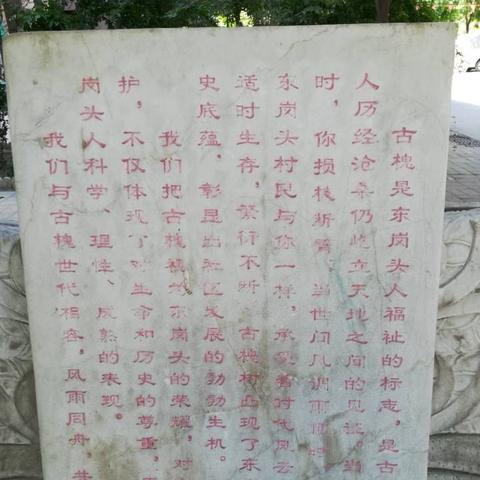 古槐是东岗头人福祉的标志，是古
人历经沧桑仍屹立天地之间的见证。当
时，你损枝断 当世间风调雨顺时
东岗头村民与你一样，承受着时代风云
适时生存，繁衍不断。古槐 凸现了东
史底蕴，彰显出社区发展的勃勃生机。
我们把古槐 为东岗头的荣耀，对
护，不仅体现了对生命和历史的尊重，
岗头人科学、理性、成熟的表现。
我们与古槐世代相容，风雨同舟，